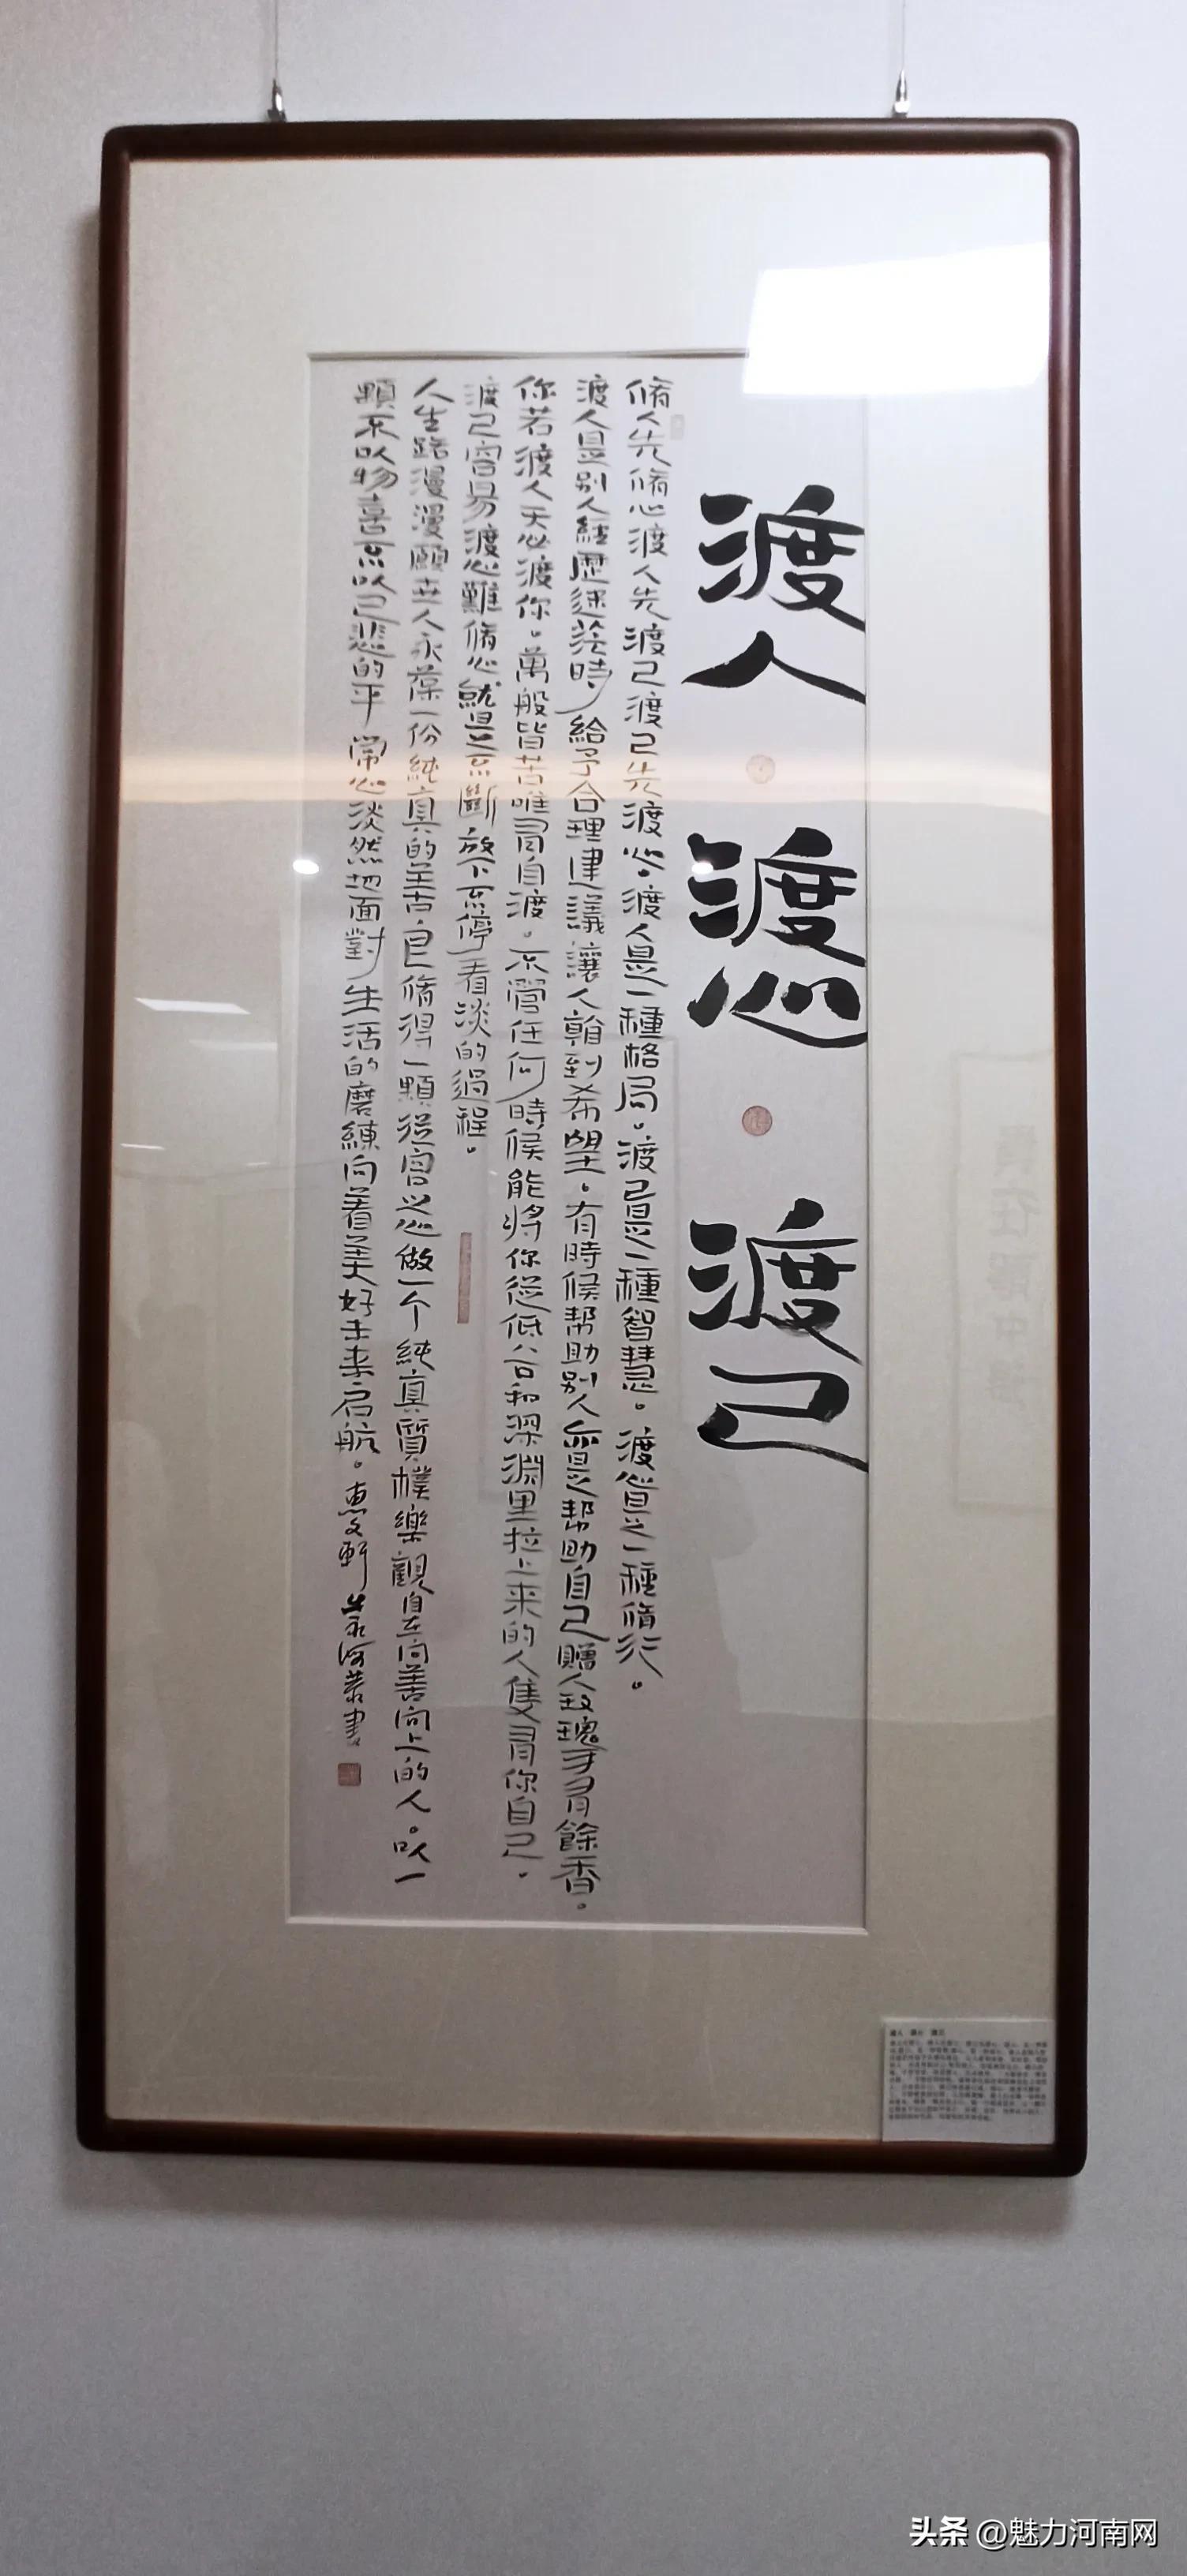 渡人 渡心 渡己
脩人先脩心渡人先渡己渡己先渡心。渡人是一種格局。渡己是一種智慧。渡心是一種脩行。
渡人是别人經歷迷茫時給予合理建議讓人翰到希望。有時候帮助别人亦是帮助自己贈人玫瑰手有餘香。
你若渡人天必渡你。萬般皆苦唯有自渡。不管任何時候能將你從低谷和深淵里拉上来的人隻有你自己。
渡己容易渡心難脩心就是不斷放下不停看淡的過程。
人生路漫漫願世人永葆一份純真的自脩得一顆從容之心做一个純真質樸樂觀自在向善向上的人。以一
顆不以物喜不以己悲的平常心淡然地面對生活的磨練向着美好未来启航。惠文軒 書
渡人 渡心 渡己
头条 @魅力河南网